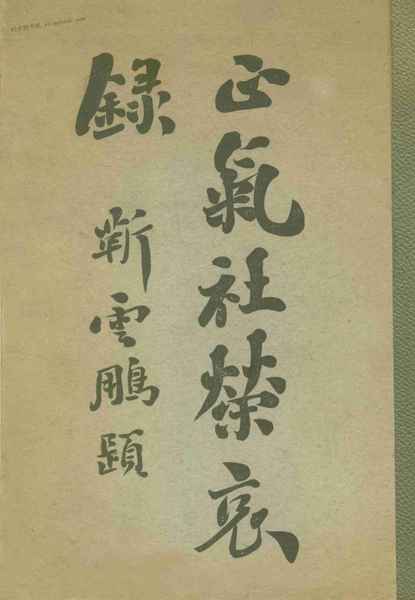 正氣社榮哀
錄
靳雲鵬題